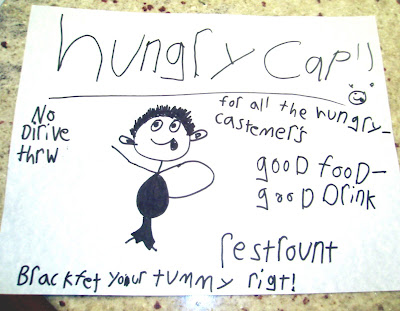 hungry cap!!
for all the hungry-
castemers
No
Dirive
thrw
gooD fooD-
gooD Drink
restrount
Brackfet your tummy rigt!